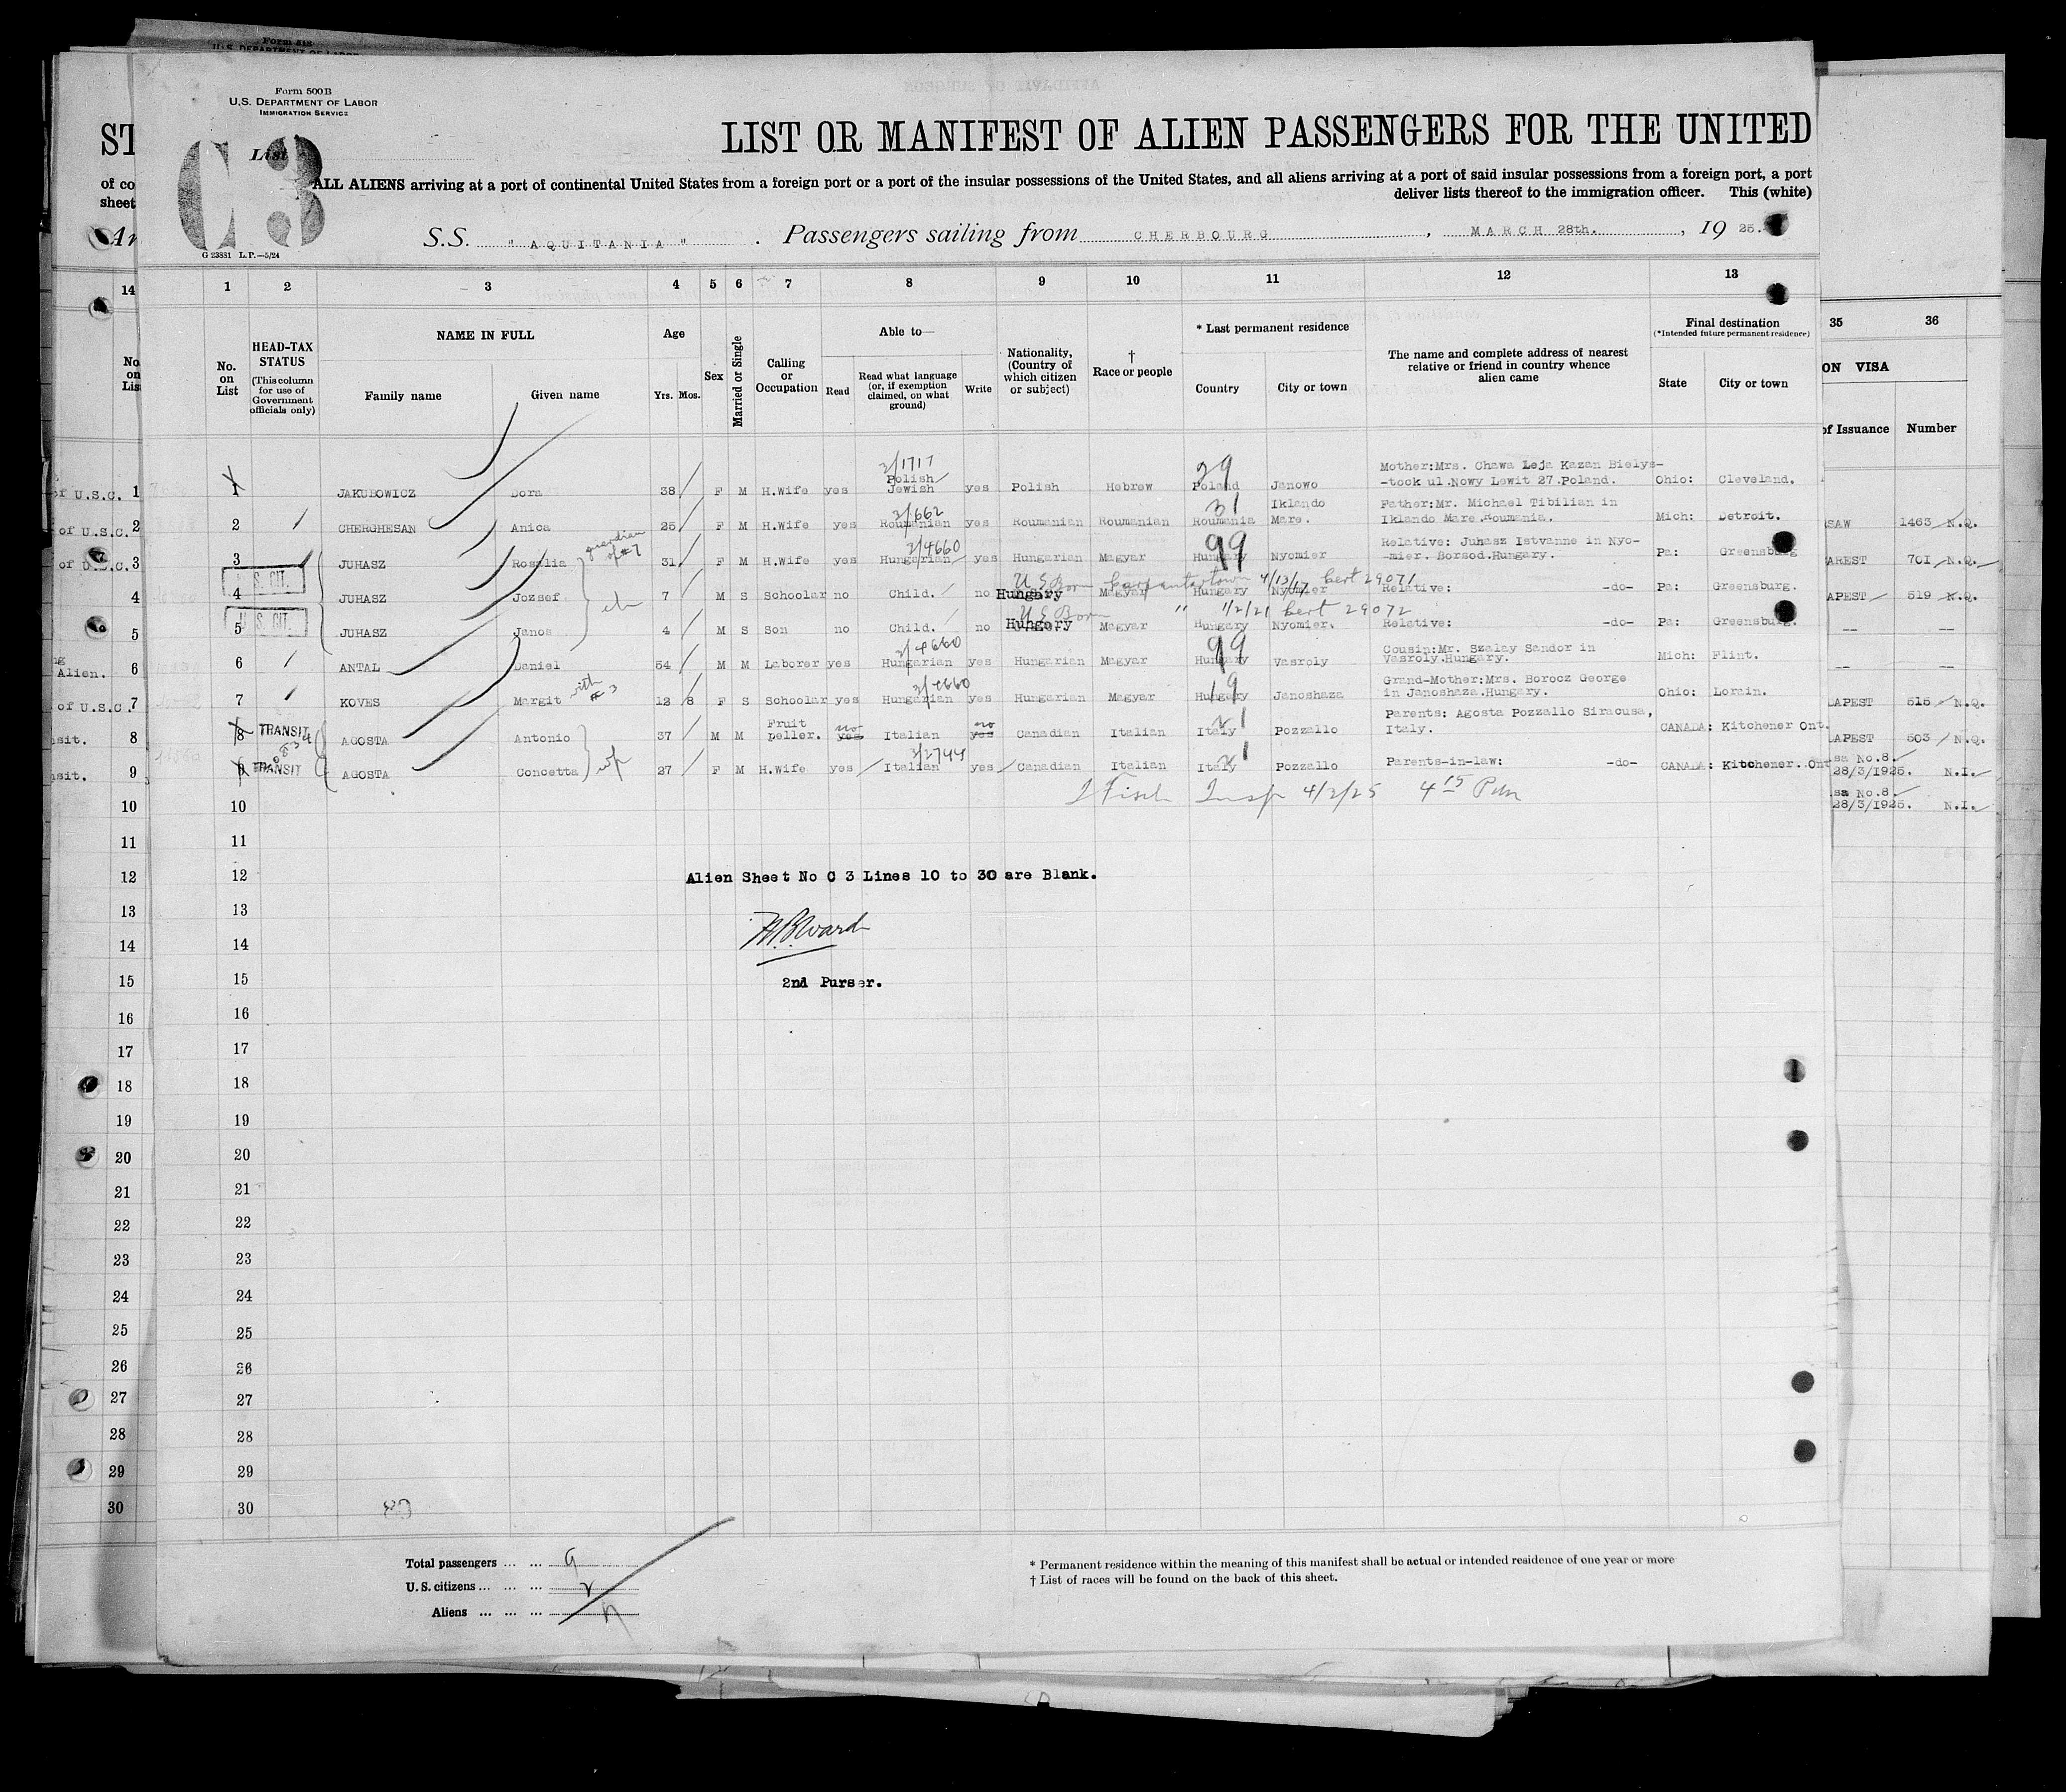 Form 500 B
U.S. DEPARTMENT OF LABOR
IMMIGRATION SERVICE
List
C3
LIST OR MANIFEST OF ALIEN PASSENGERS FOR THE UNITED
ALL ALIENS arriving at a port of continental United States from a foreign port or a port of the insular possessions of the United States, and all aliens arriving at a port of said insular possessions from a foreign port, a port
deliver lists thereof to the immigration officer. This (white)
S.S. " AQUITANIA " . Passengers sailing from CHERBOURG , MARCH 28th. , 19 25.
G 23881 L.P.—5/24
1 2 3 4 5 6 7 8 9 10 11 12 13
No. on List
HEAD-TAX STATUS (This column for use of Government officials only)
NAME IN FULL
Family name Given name
Age Yrs. Mos.
Sex
Married or Single
Calling or Occupation
Able to—
Read Read what language (or, if exemption claimed, on what ground) Write
Nationality, (Country of which citizen or subject)
† Race or people
* Last permanent residence
Country City or town
The name and complete address of nearest relative or friend in country whence alien came
Final destination (*Intended future permanent residence)
State City or town
35 36
ON VISA
of Issuance Number
1 JAKUBOWICZ Dora 38 F M H.Wife yes 3/1717 Polish Jewish yes Polish Hebrew 29 Poland Janowo Mother:Mrs. Chawa Leja Kazan Bielys--tock ul.Nowy Lewit 27.Poland. Ohio: Cleveland.
2 CHERGHESAN Anica 25 F M H.Wife yes 3/662 Roumanian yes Roumanian Roumanian 31 Roumania Iklando Mare. Father:Mr. Michael Tibilian in Iklando Mare.Roumania. Mich: Detroit.
3 JUHASZ Rosalia guardian of #7 31 F M H.Wife yes 3/4660 Hungarian yes Hungarian Magyar 99 Hungary Nyomier Relative: Juhasz Istvanne in Nyo--mier. Borsod.Hungary. Pa: Greensburg
U.S. CIT. 4 JUHASZ Jozsef 7 M S Schoolar no Child. no Hungary U S Born Carpentertown 4/13/17 Cert 29071 Magyar Hungary Nyomier Relative: -do- Pa: Greensburg.
U.S. CIT. 5 JUHASZ Janos 4 M S Son no Child. no Hungary U S Born " 1/2/21 Cert 29072 Magyar Hungary Nyomier. Relative: -do- Pa: Greensburg.
6 ANTAL Daniel 54 M M Laborer yes 3/4660 Hungarian yes Hungarian Magyar 99 Hungary Vasroly Cousin:Mr. Szalay Sandor in Vasroly.Hungary. Mich: Flint.
7 KOVES Margit with #3 12 8 F S Schoolar yes 3/4660 Hungarian yes Hungarian Magyar 19 Hungary Janoshaza Grand-Mother:Mrs. Borocz George in Janoshaza.Hungary. Ohio: Lorain.
8 TRANSIT AGOSTA Antonio 37 M M Fruit peller. no yes Italian no yes Canadian Italian 21 Italy Pozzallo Parents: Agosta Pozzallo Siracusa, Italy. CANADA: Kitchener Ont.
9 TRANSIT AGOSTA Concetta 27 F M H.Wife yes 3/2744 Italian yes Canadian Italian 21 Italy Pozzallo Parents-in-law: -do- CANADA: Kitchener. Ont
Insp 4/2/25
10
11
12 Alien Sheet No C 3 Lines 10 to 30 are Blank.
13
14 H.B.Ward
15 2nd Purser.
16
17
18
19
20
21
22
23
24
25
26
27
28
29
30
Total passengers ... ... 9
U.S. citizens ... ... ... 2
Aliens ... ... ...
* Permanent residence within the meaning of this manifest shall be actual or intended residence of one year or more
† List of races will be found on the back of this sheet.
ST
of co
sheet
Ar
14
No. on List
of U.S.C. 1
of U.S.C. 2
of U.S.C. 3
4
5
Alien. 6
of U.S.C. 7
nsit. 8
nsit. 9
10
11
12
13
14
15
16
17
18
19
20
21
22
23
24
25
26
27
28
29
30
SAW 1463 N.Q.
AREST 701 N.Q.
APEST 519 N.Q.
-- --
-- --
DAPEST 515 N.Q.
DAPEST 503 N.Q.
sa No.8. 28/3/1925. N.I.
sa No.8. 28/3/1925. N.I.